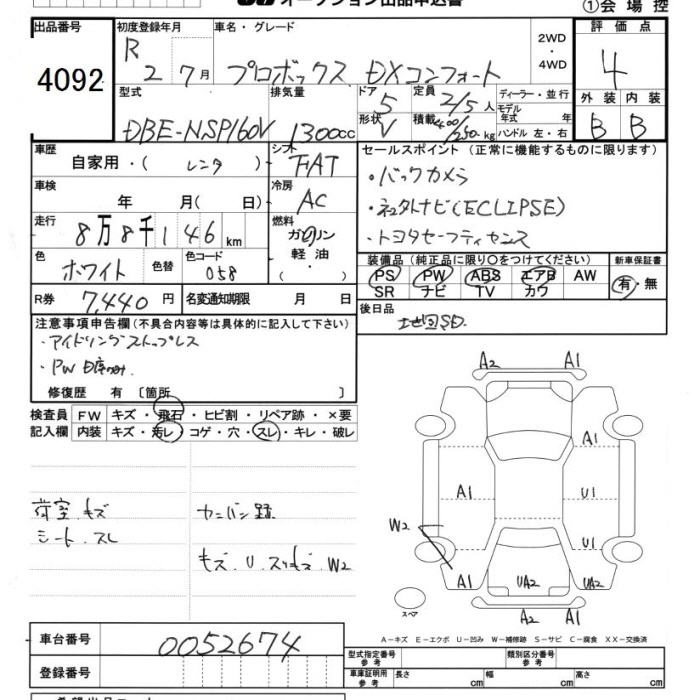 オークション出品申込書 ①会場控
出品番号 初度登録年月 車名・グレード 2WD・4WD 評価点
4092 R 2 7月 プロボックス DXコンフォート 4
型式 排気量 ドア 5 定員 2/5人 ディーラー・並行 外装 内装
DBE-NSP160V 1300cc 形状 V 積載 400/250kg モデル年式 年 ハンドル 左・右 B B
車歴 自家用・(レンタ) シフト FAT セールスポイント(正常に機能するものに限ります)
車検 年 月(日) 冷房 AC ・バックカメラ
走行 8万8千146km 燃料 ガソリン 軽油・(・) ・社外ナビ(ECLIPSE)
・トヨタセーフティセンス
色 ホワイト 色替 色コード 058 装備品(純正品に限り○をつけてください) 新車保証書
PS PW ABS エアB AW 有・無
SR ナビ TV カワ
R券 7,440円 名変通知期限 月 日 後日品 地図SD
注意事項申告欄(不具合内容等は具体的に記入して下さい)
・アイドリングストップレス
・PW
修復歴 有 〔箇所 〕
検査員 FW キズ・飛石・ヒビ割・リペア跡・×要
記入欄 内装 キズ・汚レ・コゲ・穴・スレ・キレ・破レ
荷室 キズ カンバン跡
シート スレ
キズ.U.スリキズ.W2
A2 A1
A1
A1 U1
W2 U1
A1 UA2 UA2
A2 A1
スペア
A－キズ E－エクボ U－凹み W－補修跡 S－サビ C－腐食 XX－交換済
車台番号 0052674 型式指定番号 参考 類別区分番号 参考
登録番号 車庫証明用 参考 長さ cm 幅 cm 高さ cm